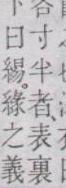 各寸半者、表裏
下曰緆。緣之義